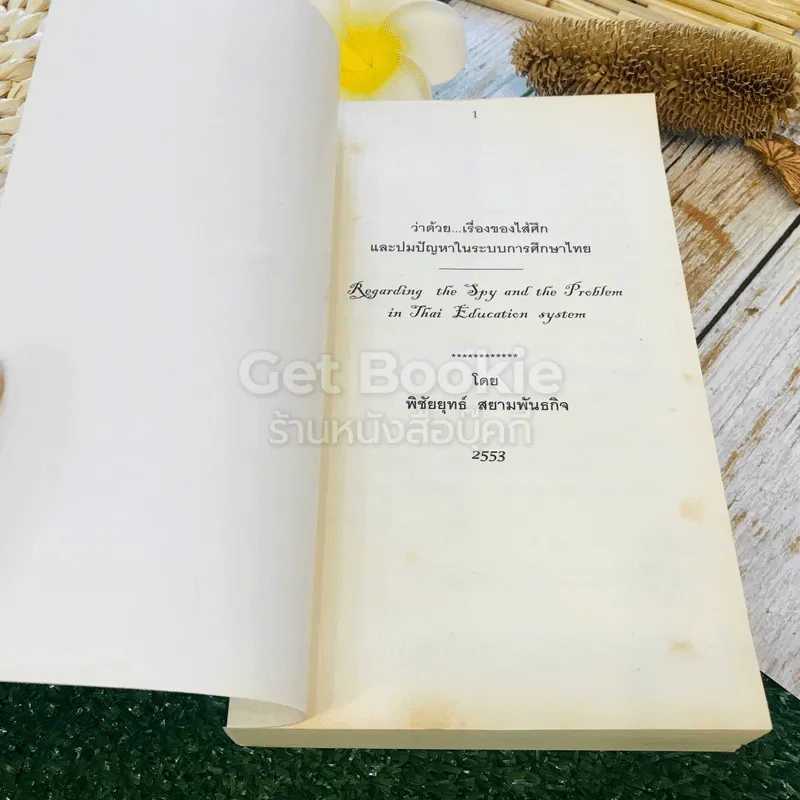 1
ว่าด้วย...เรื่องของไส้ศึก
และปมปัญหาในระบบการศึกษาไทย
Regarding the Spy and the Problem
in Thai Education system
************
Get Bookie
โดย
พิชัยยุทธ์ สยามพันธกิจ
ร้านหนังสือบุ๊คกี้
2553